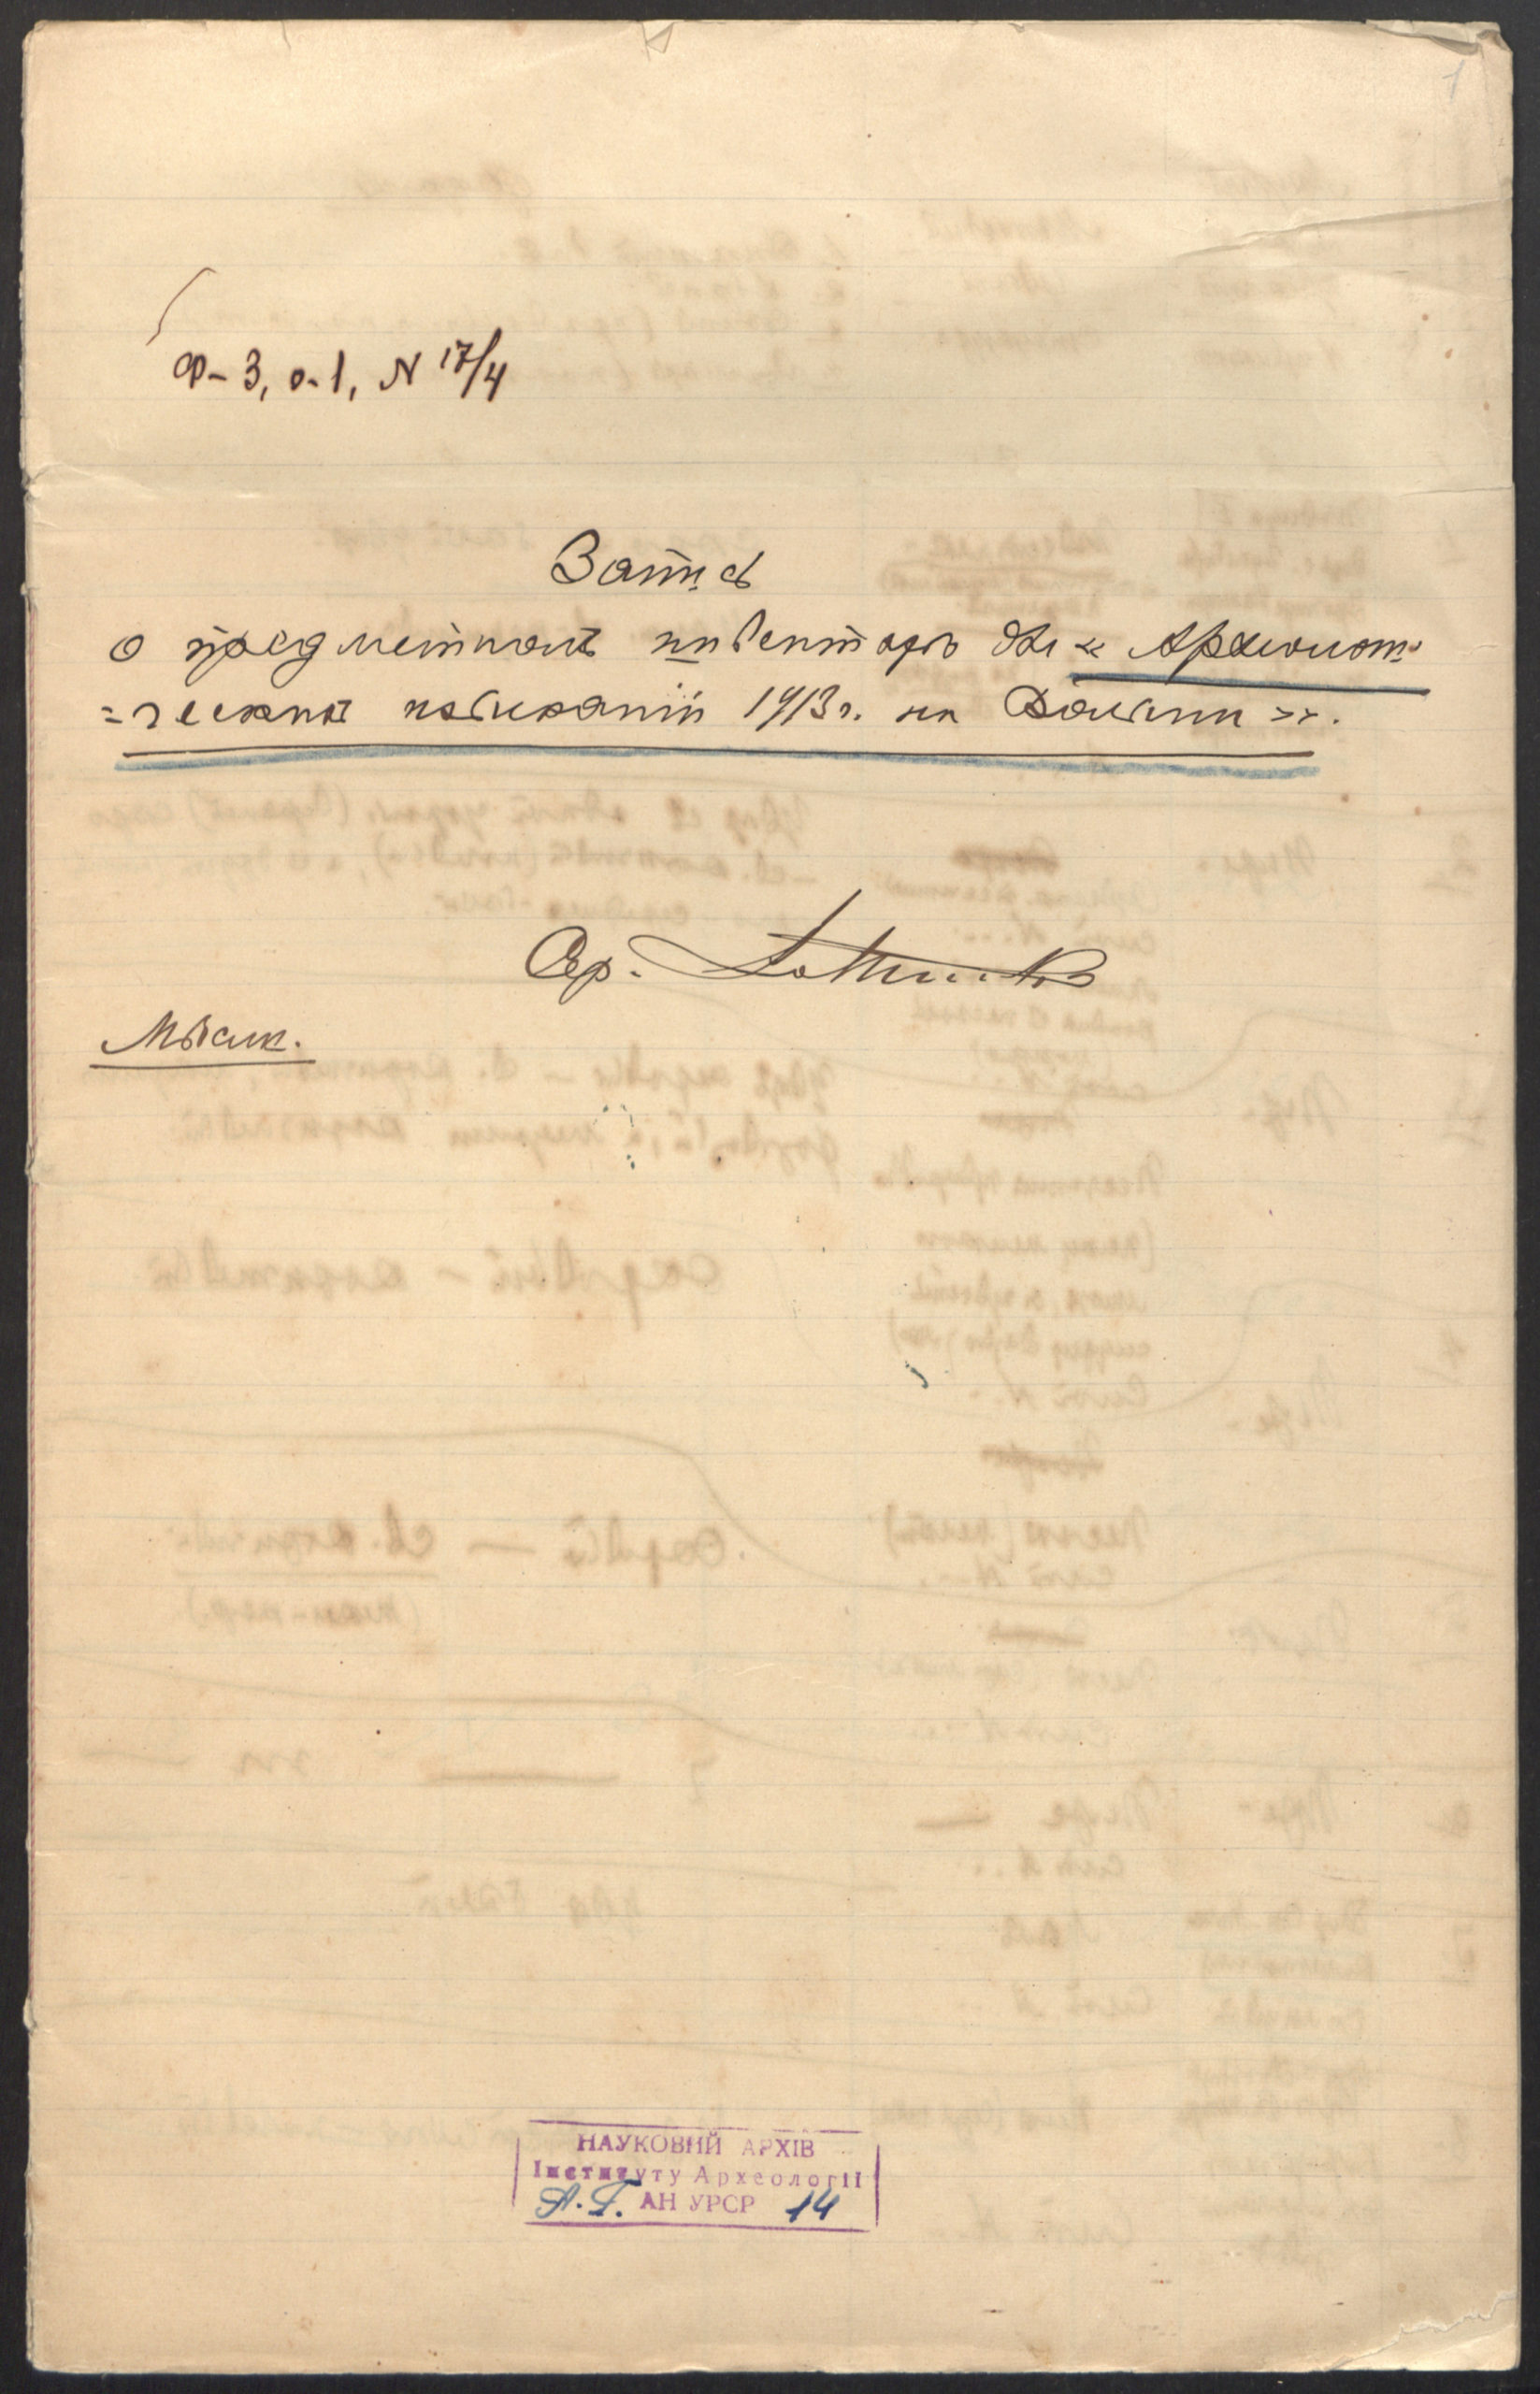 1
Ф-3, о-1, N 17/4
Запись
о предметномъ инвентарѣ для « Археологи-
=ческихъ изысканій 1913 г. на Волыни ».
Сер.
НАУКОВИЙ АРХІВ
Інституту Археології
А.Г. АН УРСР 14